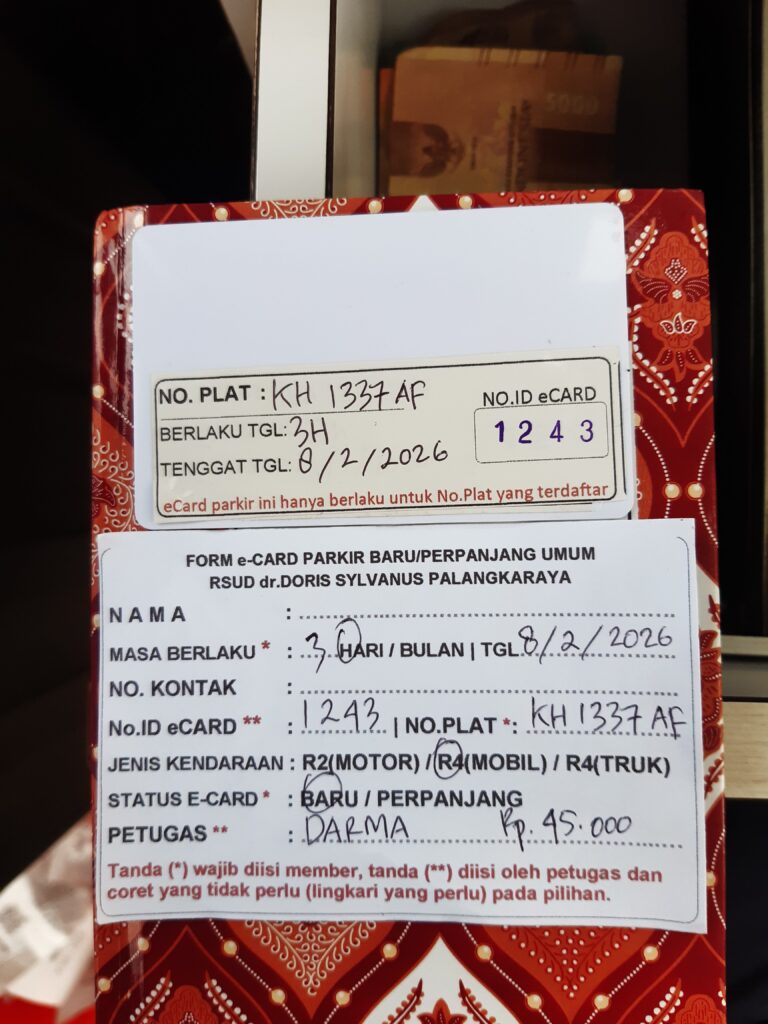 5000
NO. PLAT : KH 1337 AF
NO.ID eCARD
BERLAKU TGL: 3H
1 2 4 3
TENGGAT TGL: 8/2/2026
eCard parkir ini hanya berlaku untuk No.Plat yang terdaftar
FORM e-CARD PARKIR BARU/PERPANJANG UMUM
RSUD dr.DORIS SYLVANUS PALANGKARAYA
N A M A : ....................
MASA BERLAKU * : 3 HARI / BULAN | TGL. 8/2/2026
NO. KONTAK : ....................
No.ID eCARD ** : 1243 | NO.PLAT *: KH 1337 AF
JENIS KENDARAAN : R2(MOTOR) / R4(MOBIL) / R4(TRUK)
STATUS E-CARD * : BARU / PERPANJANG
PETUGAS ** : DARMA Rp. 45.000
Tanda (*) wajib diisi member, tanda (**) diisi oleh petugas dan
coret yang tidak perlu (lingkari yang perlu) pada pilihan.